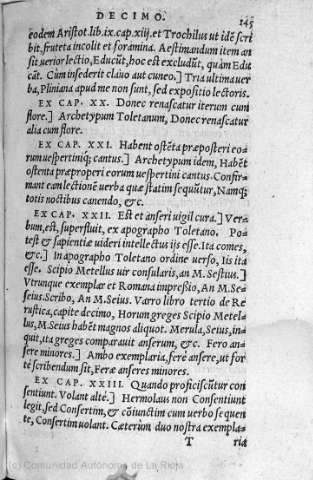 DECIMO. 145
eodem Aristot. lib. ix. cap. xiij. et Trochilus ut idẽ scri
bit, fruteta incolit et foramina. Aestimandum item an
sit uerior lectio, Educũt, hoc est excludũt, quàm Edu
cãt. Cùm insederit clauo aut cuneo.] Tria ultima uer
ba, Pliniana apud me non sunt, sed expositio lectoris.
EX CAP. XX. Donec renascatur iterum cum
flore.] Archetypum Toletanum, Donec renascatur
alia cum flore.
EX CAP. XXI. Habent ostẽta præposteri eo-
rum uespertiniq; cantus.] Archetypum idem, Habẽt
ostenta præproperi eorum uespertini cantus. Confir-
mant eam lectionẽ uerba quæ statim sequũtur, Namq;
totis noctibus canendo, &c.
EX CAP. XXII. Est et anseri uigil cura.] Ver-
bum, est, superfluit, ex apographo Toletano. Po-
test & sapientiæ uideri intellectus ijs esse. Ita comes,
&c.] In apographo Toletano ordine uerso, Iis ita
esse. Scipio Metellus uir consularis, an M. Sestius.]
Vtrunque exemplar et Romana impressio, An M. Se-
seius. Scribo, An M. Seius. Varro libro tertio de Re
rustica, capite decimo, Horum greges Scipio Metel-
lus, M. Seius habẽt magnos aliquot. Merula, Seius, in-
quit, ita greges comparauit anserum, &c. Fero an-
sere minores.] Ambo exemplaria, ferè ansere, ut for
tè scribendum sit, Feræ anseres minores.
EX CAP. XXIII. Quando proficiscũtur con
sentiunt. Volant altè.] Hermolaus non Consentiunt
legit, sed Consertim, & cõiunctim cum uerbo sequen
te, Consertim uolant. Cæterùm duo nostra exempla-
T ria
(c) Comunidad Autónoma de La Rioja